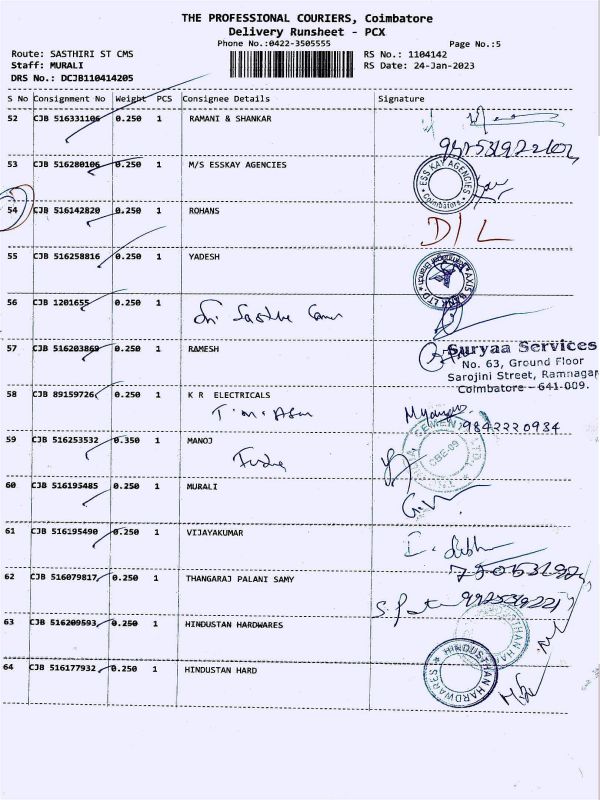 THE PROFESSIONAL COURIERS, Coimbatore
Delivery Runsheet - PCX
Phone No.:0422-3505555
Page No.:5
Route: SASTHIRI ST CMS
RS No.: 1104142
Staff: MURALI
RS Date: 24-Jan-2023
DRS No.: DCJB110414205
S No Consignment No Weight PCS Consignee Details Signature
52 CJB 516331106 0.250 1 RAMANI & SHANKAR
53 CJB 516280106 0.250 1 M/S ESSKAY AGENCIES
ESS KAY AGENCIES
Coimbatore
54 CJB 516142820 0.250 1 ROHANS
D/L
55 CJB 516258816 0.250 1 YADESH
AXIS BANK LTD
56 CJB 1201655 0.250 1
57 CJB 516203869 0.250 1 RAMESH
Suryaa Services
No. 63, Ground Floor
Sarojini Street, Ramnagar
Coimbatore - 641-009.
58 CJB 89159726 0.250 1 K R ELECTRICALS
9842220984
59 CJB 516253532 0.350 1 MANOJ
CEMENT
CBE-09
60 CJB 516195485 0.250 1 MURALI
61 CJB 516195490 0.250 1 VIJAYAKUMAR
62 CJB 516079817 0.250 1 THANGARAJ PALANI SAMY
63 CJB 516209593 0.250 1 HINDUSTAN HARDWARES
64 CJB 516177932 0.250 1 HINDUSTAN HARD
HINDUSTHAN HARDWARES